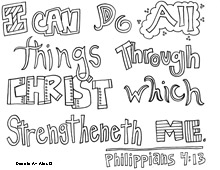 I CAN Do All
things Through
CHRIST which
Strengtheneth ME.
Philippians 4:13